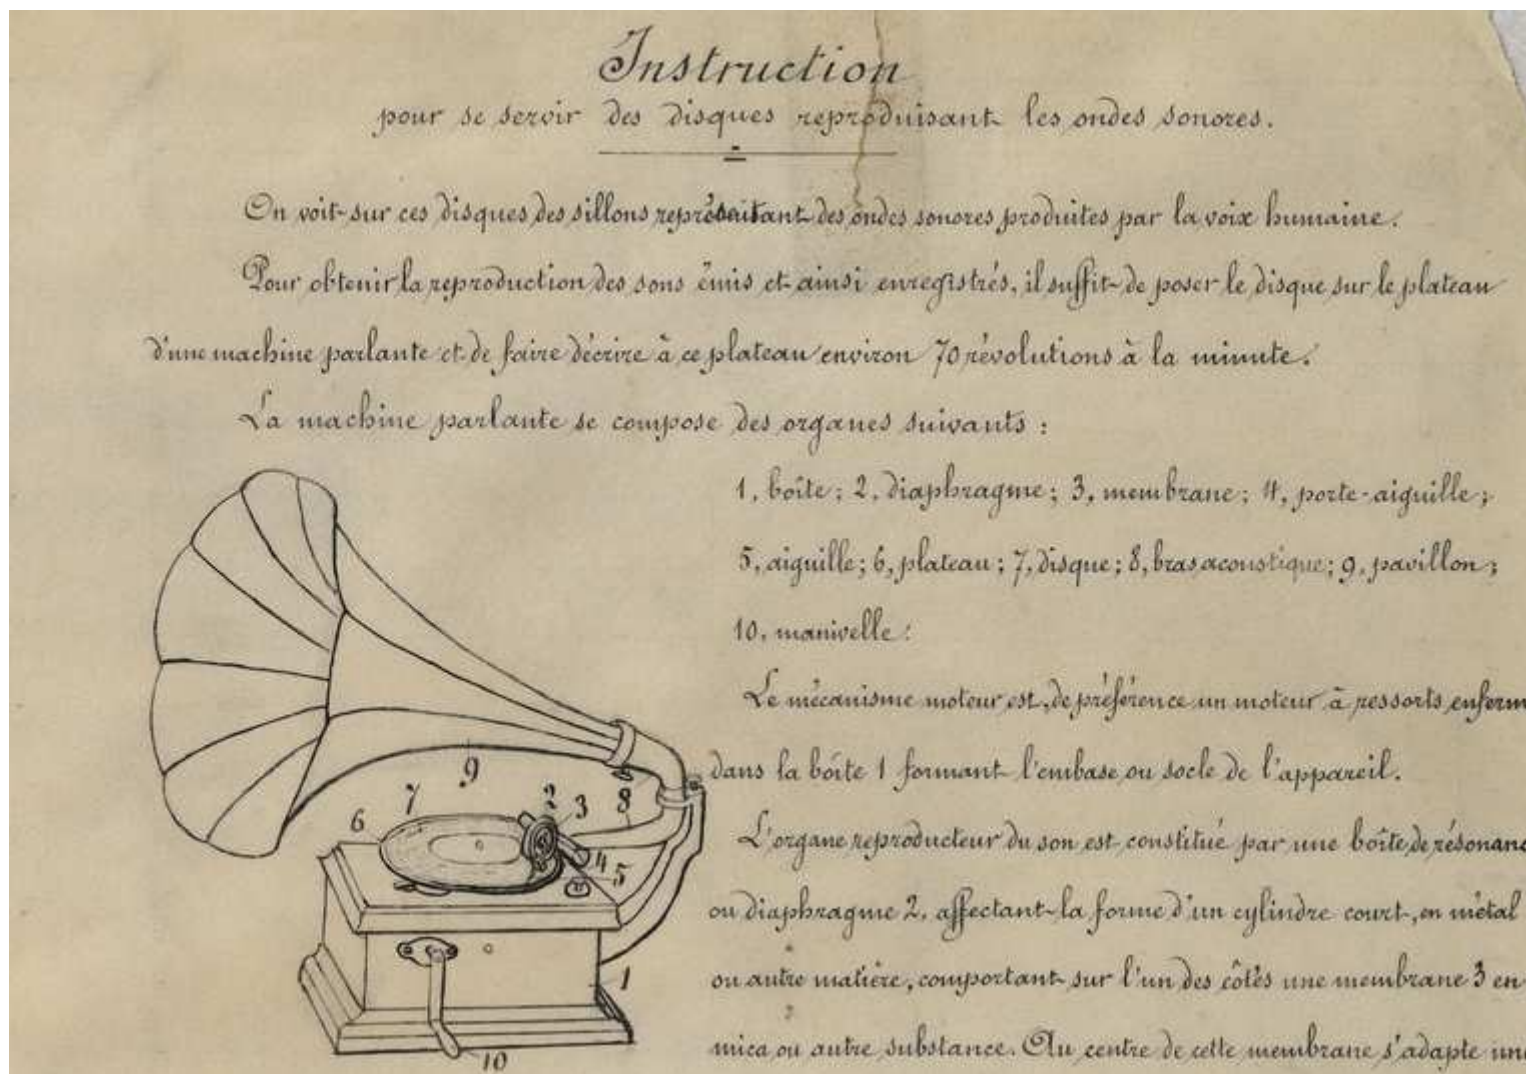 Instruction
pour se servir des disques reproduisant les ondes sonores.
On voit sur ces disques des sillons représentant des ondes sonores produites par la voix humaine.
Pour obtenir la reproduction des sons émis et ainsi enregistrés, il suffit de poser le disque sur le plateau
d'une machine parlante et de faire décrire à ce plateau environ 70 révolutions à la minute.
La machine parlante se compose des organes suivants :
1, boîte ; 2, diaphragme ; 3, membrane ; 4, porte-aiguille ;
5, aiguille ; 6, plateau ; 7, disque ; 8, bras acoustique ; 9, pavillon ;
10, manivelle :
Le mécanisme moteur est, de préférence un moteur à ressorts enferm
dans la boîte 1 formant l'embase ou socle de l'appareil.
L'organe reproducteur du son est constitué par une boîte de résonanc
ou diaphragme 2, affectant la forme d'un cylindre court, en métal
ou autre matière, comportant sur l'un des côtés une membrane 3 en
mica ou autre substance. Au centre de cette membrane s'adapte une
9
7
2
3
8
6
4
5
1
10